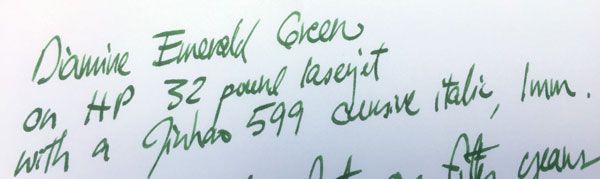 Diamine Emerald Green
on HP 32 pound laserjet
with a Jinhao 599 cursive italic, 1mm.
fifty years